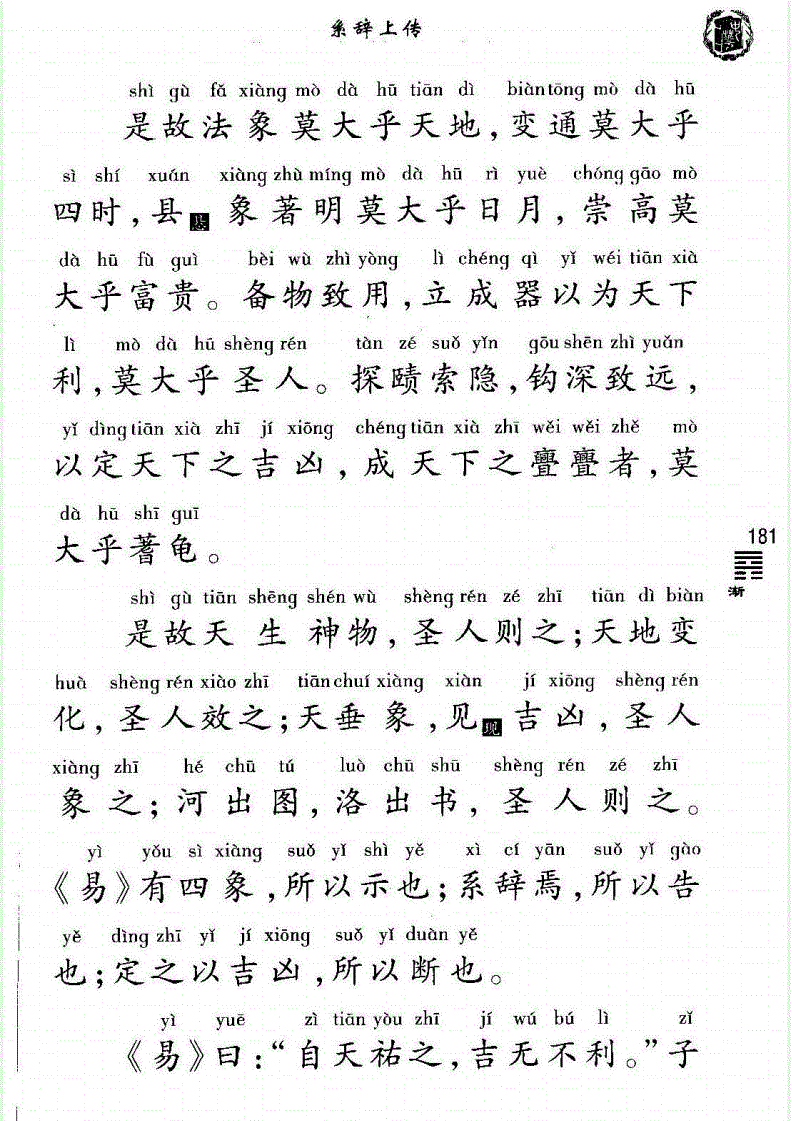 系辞上传
shì gù fǎ xiàng mò dà hū tiān dì biàn tōng mò dà hū
是故法象莫大乎天地,变通莫大乎
sì shí xuán xiàng zhù míng mò dà hū rì yuè chóng gāo mò
四时,县悬象著明莫大乎日月,崇高莫
dà hū fù guì bèi wù zhì yòng lì chéng qì yǐ wéi tiān xià
大乎富贵。备物致用,立成器以为天下
lì mò dà hū shèng rén tàn zé suǒ yǐn gōu shēn zhì yuǎn
利,莫大乎圣人。探赜索隐,钩深致远,
yǐ dìng tiān xià zhī jí xiōng chéng tiān xià zhī wěi wěi zhě mò
以定天下之吉凶,成天下之亹亹者,莫
dà hū shī guī
大乎蓍龟。
181
渐
shì gù tiān shēng shén wù shèng rén zé zhī tiān dì biàn
是故天生神物,圣人则之;天地变
huà shèng rén xiào zhī tiān chuí xiàng xiàn jí xiōng shèng rén
化,圣人效之;天垂象,见现吉凶,圣人
xiàng zhī hé chū tú luò chū shū shèng rén zé zhī
象之;河出图,洛出书,圣人则之。
yì yǒu sì xiàng suǒ yǐ shì yě xì cí yān suǒ yǐ gào
《易》有四象,所以示也;系辞焉,所以告
yě dìng zhī yǐ jí xiōng suǒ yǐ duàn yě
也;定之以吉凶,所以断也。
yì yuē zì tiān yòu zhī jí wú bú lì zǐ
《易》曰:“自天祐之,吉无不利。”子